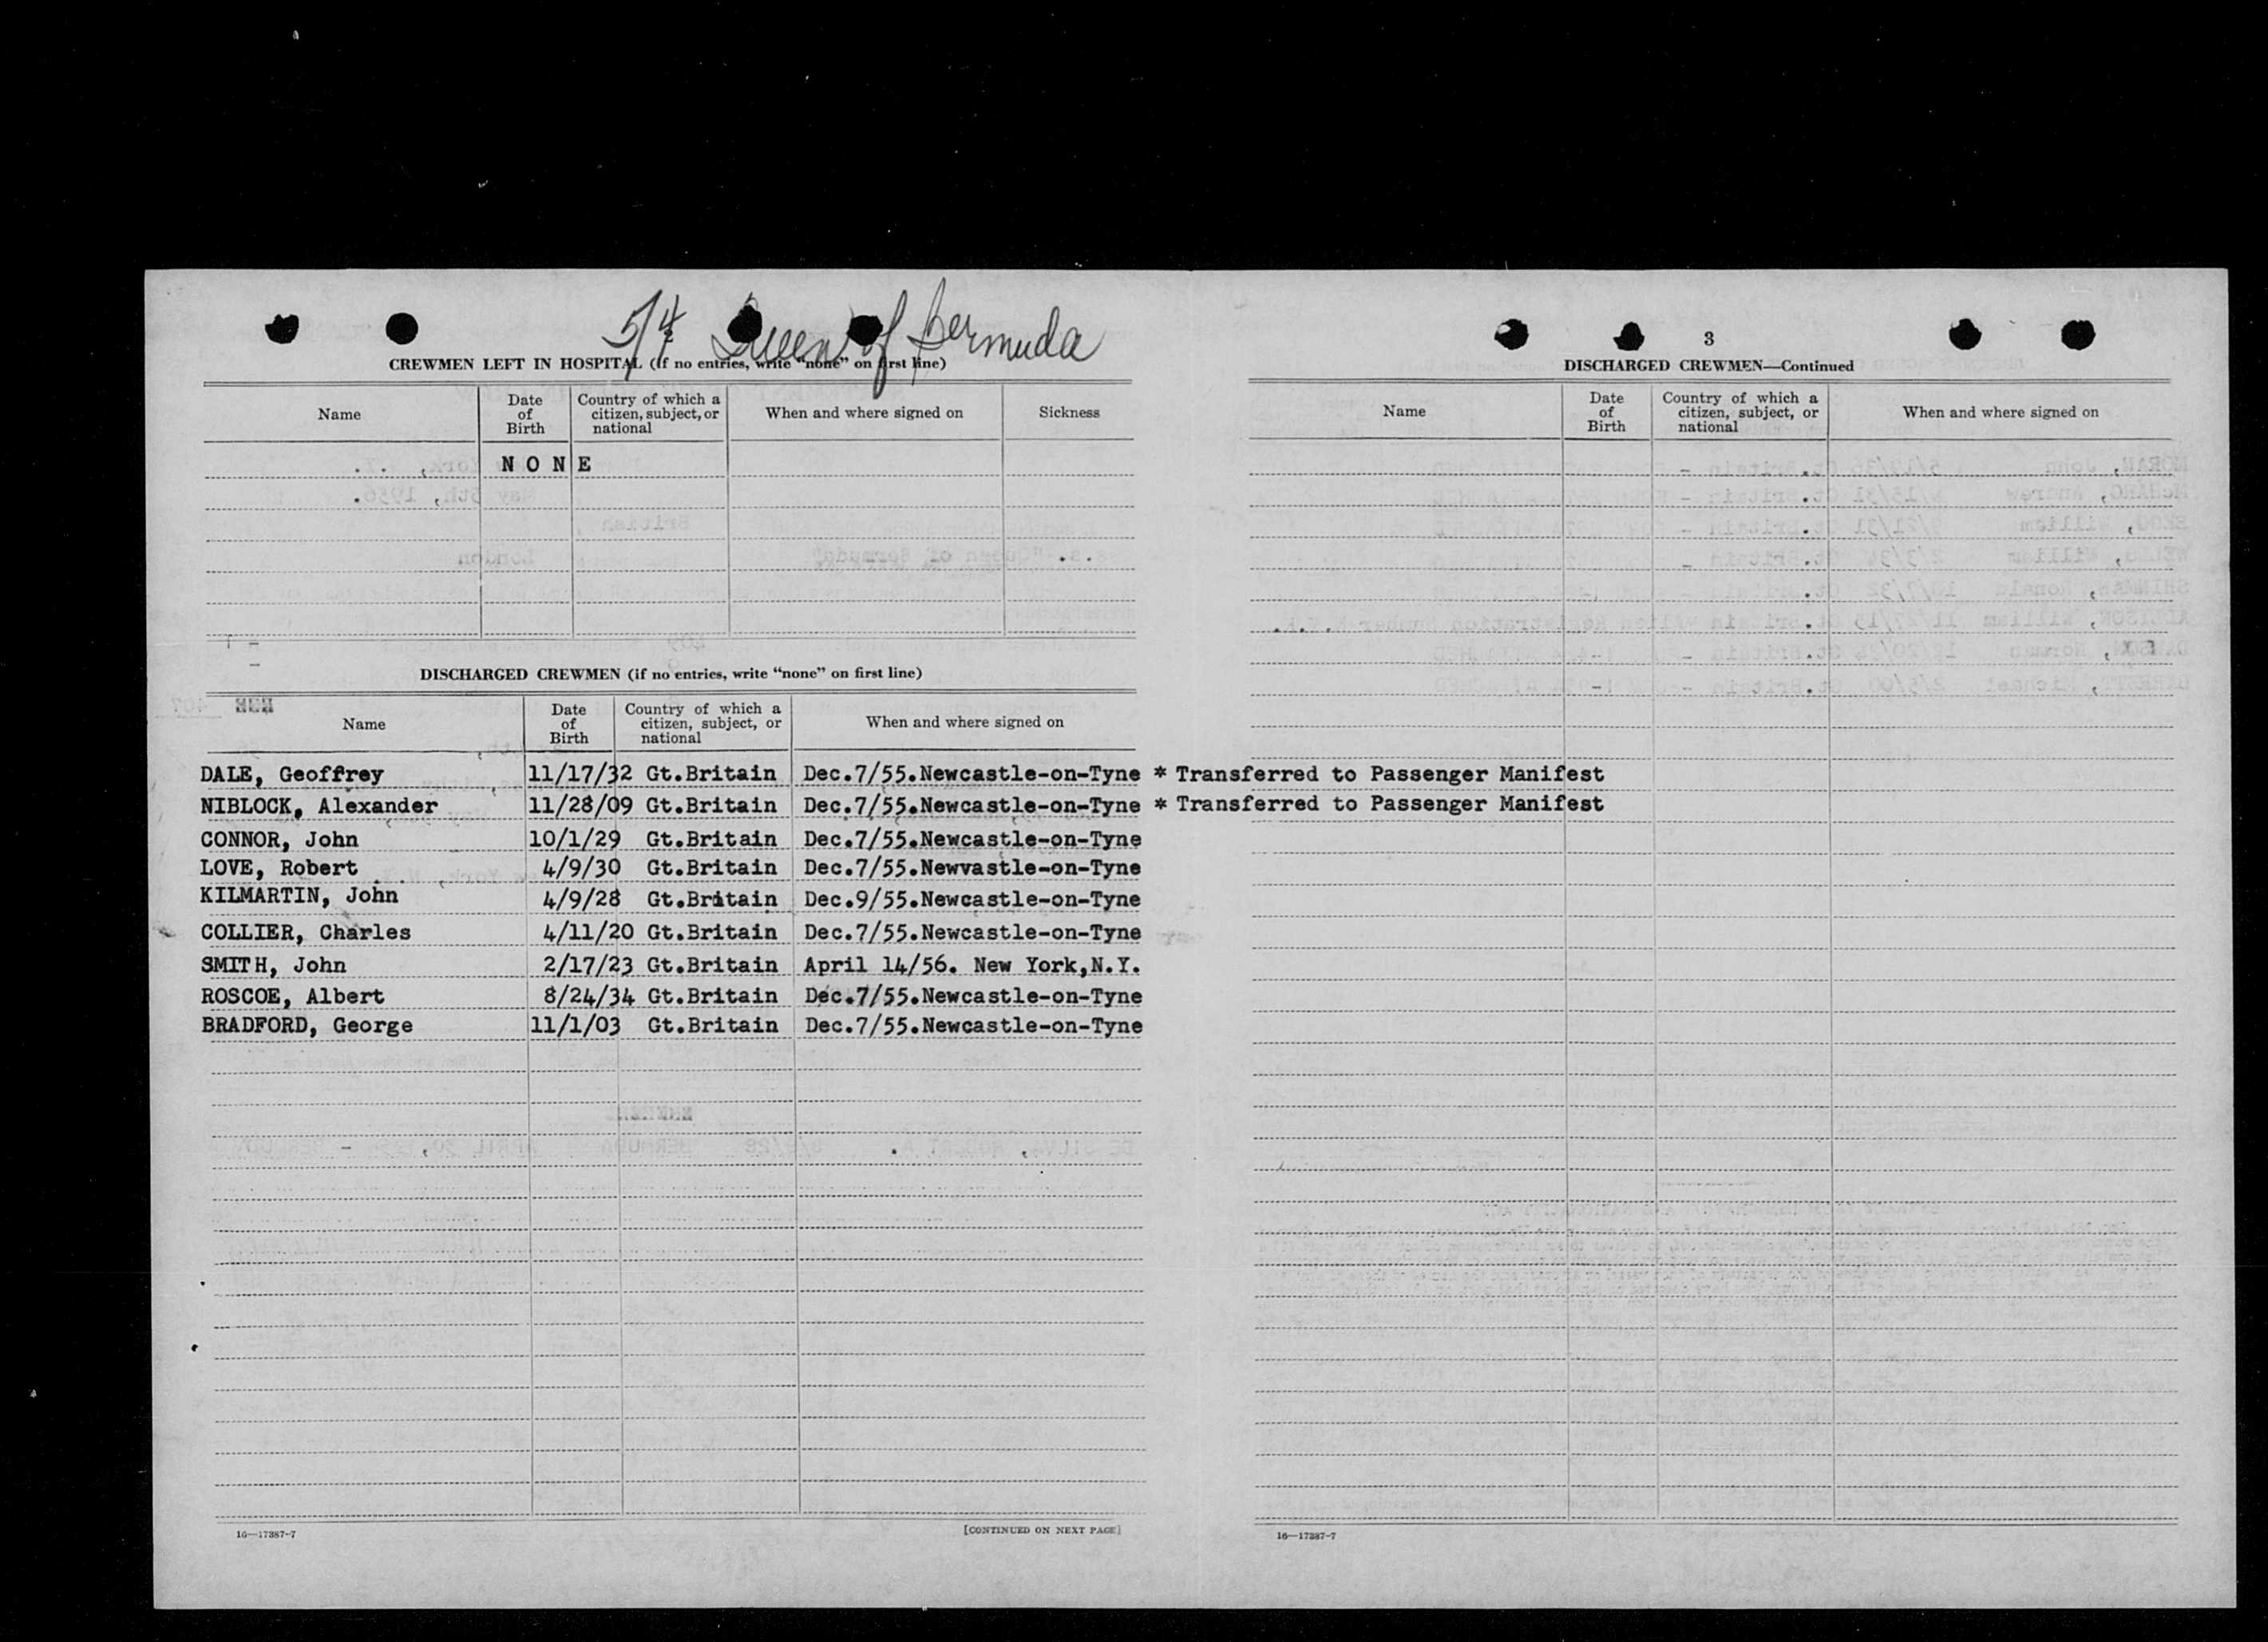 5/4 Queen of Bermuda
CREWMEN LEFT IN HOSPITAL (if no entries, write "none" on first line)
Name
Date of Birth
Country of which a citizen, subject, or national
When and where signed on
Sickness
NONE
DISCHARGED CREWMEN (if no entries, write "none" on first line)
Name
Date of Birth
Country of which a citizen, subject, or national
When and where signed on
DALE, Geoffrey 11/17/32 Gt.Britain Dec.7/55.Newcastle-on-Tyne * Transferred to Passenger Manifest
NIBLOCK, Alexander 11/28/09 Gt.Britain Dec.7/55.Newcastle-on-Tyne * Transferred to Passenger Manifest
CONNOR, John 10/1/29 Gt.Britain Dec.7/55.Newcastle-on-Tyne
LOVE, Robert 4/9/30 Gt.Britain Dec.7/55.Newvastle-on-Tyne
KILMARTIN, John 4/9/28 Gt.Britain Dec.9/55.Newcastle-on-Tyne
COLLIER, Charles 4/11/20 Gt.Britain Dec.7/55.Newcastle-on-Tyne
SMITH, John 2/17/23 Gt.Britain April 14/56. New York,N.Y.
ROSCOE, Albert 8/24/34 Gt.Britain Dec.7/55.Newcastle-on-Tyne
BRADFORD, George 11/1/03 Gt.Britain Dec.7/55.Newcastle-on-Tyne
16—17387-7
[CONTINUED ON NEXT PAGE]
3
DISCHARGED CREWMEN—Continued
Name
Date of Birth
Country of which a citizen, subject, or national
When and where signed on
16—17387-7